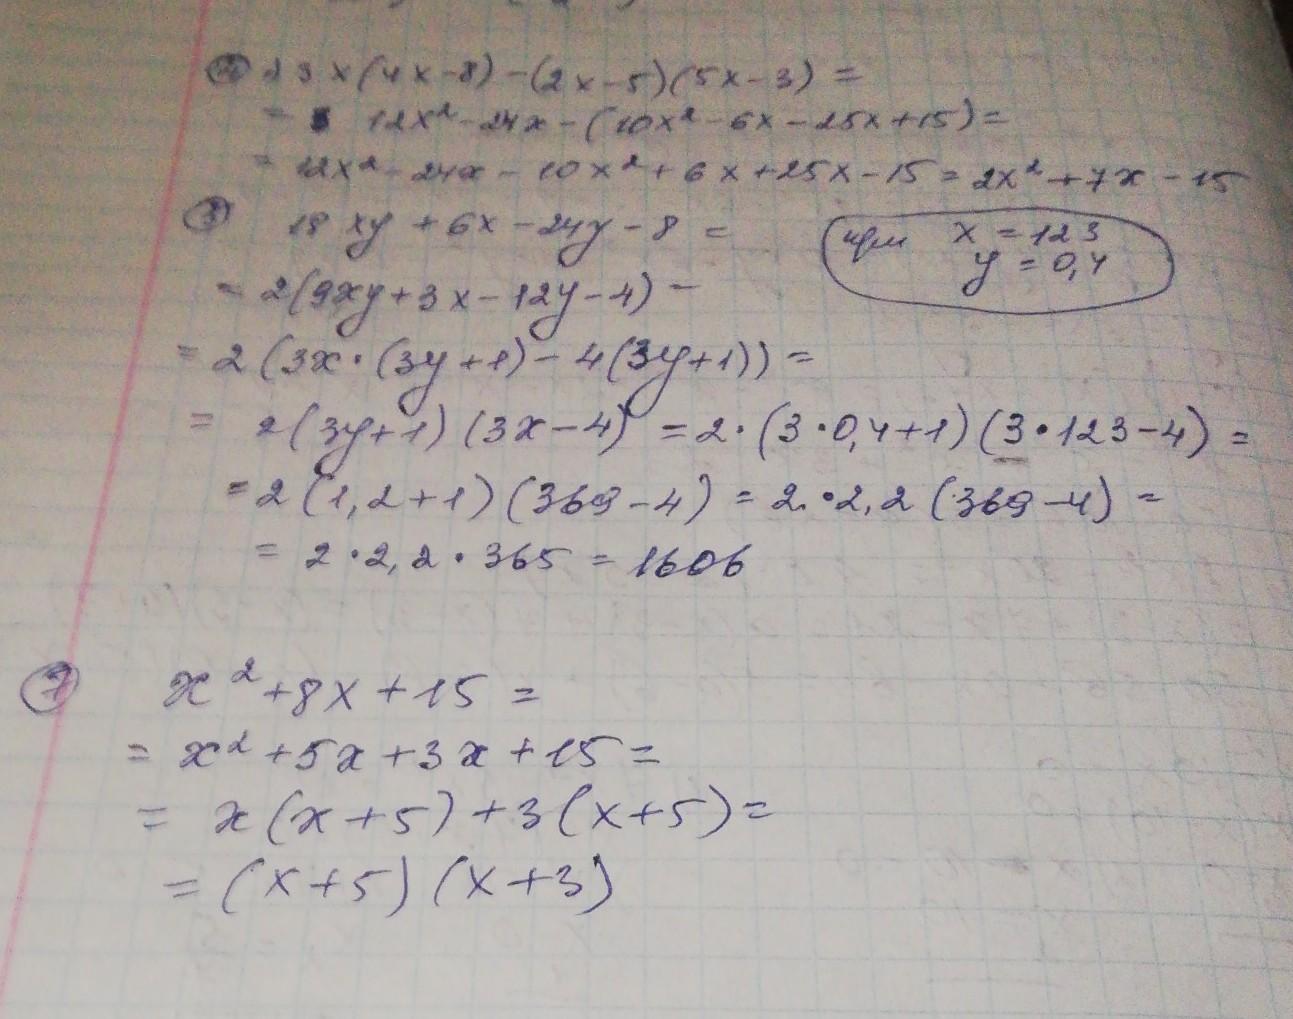 3x(4x-8)-(2x-5)(5x-3)=
= 12x²-24x-(10x²-6x-25x+15)=
= 12x²-24x-10x²+6x+25x-15=2x²+7x-15
18xy+6x-24y-8=
при x=123
y=0,4
=2(9xy+3x-12y-4)=
=2(3x·(3y+1)-4(3y+1))=
= 2(3y+1)(3x-4)=2·(3·0,4+1)(3·123-4)=
=2(1,2+1)(369-4)=2·2,2(369-4)=
= 2·2,2·365=1606
7 x²+8x+15=
= x²+5x+3x+15=
= x(x+5)+3(x+5)=
=(x+5)(x+3)